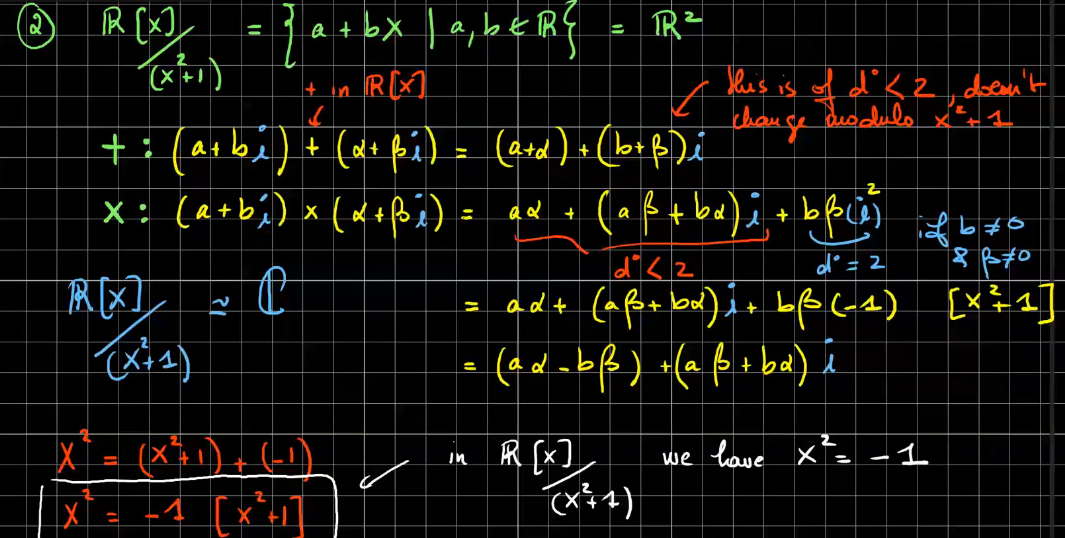 ② ℝ[X]/(X²+1) = { a + bX | a, b ∈ ℝ } = ℝ²
+ in ℝ[X]
this is of d° < 2, doesn't
change modulo X²+1
+ : (a + bi) + (α + βi) = (a+α) + (b+β)i
× : (a + bi) × (α + βi) = aα + (aβ + bα)i + bβ(i²)
if b ≠ 0
& β ≠ 0
d° < 2
d° = 2
ℝ[X]/(X²+1) ≃ ℂ
= aα + (aβ + bα)i + bβ(-1) [X²+1]
= (aα - bβ) + (aβ + bα)i
X² = (X²+1) + (-1)
X² = -1 [X²+1]
in ℝ[X]/(X²+1) we have X² = -1